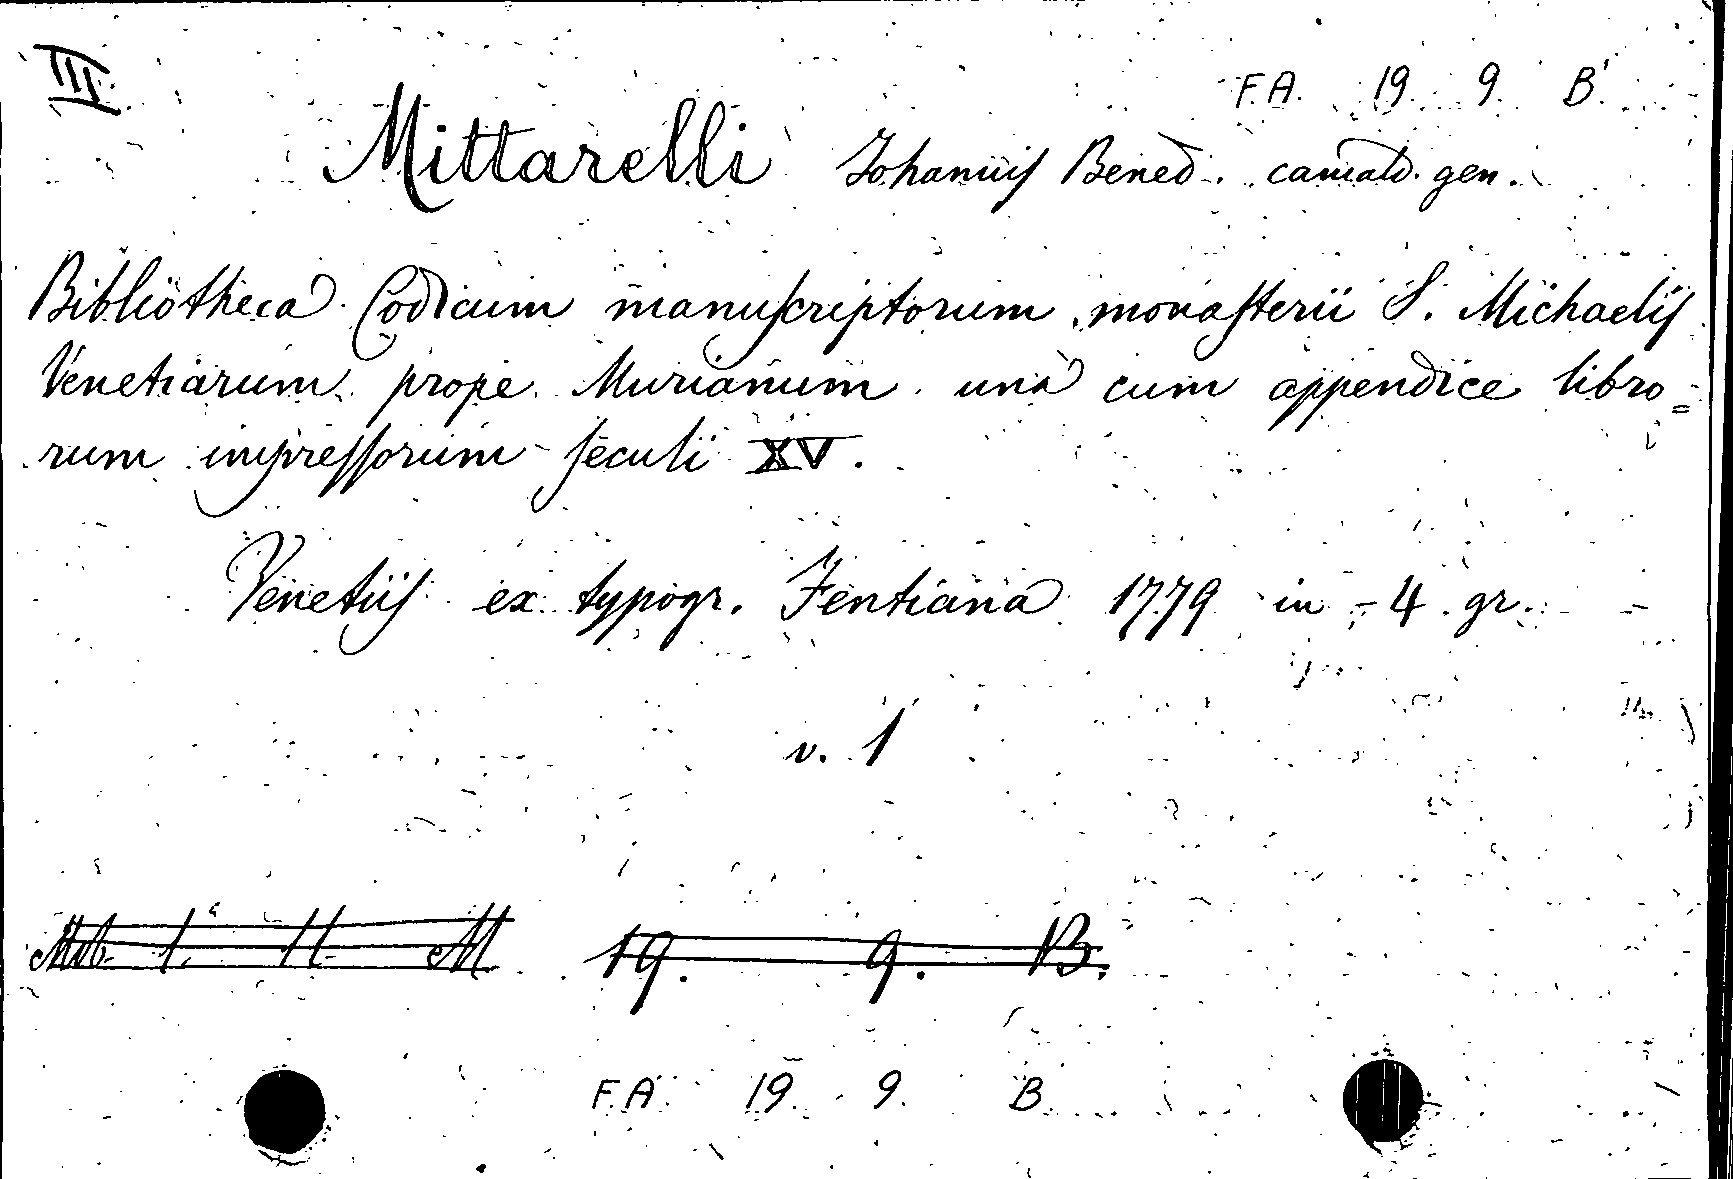 III.
F.A. 19. 9. B.
Mittarelli Johannis Bened. camald. gen.
Bibliotheca Codicum manuscriptorum monasterii S. Michaelis
Venetiarum prope Murianum una cum appendice libro=
rum impressorum seculi XV.
Venetiis ex typogr. Fentiana 1779 in-4 gr.
v. 1
19. 9. B.
F.A. 19. 9. B